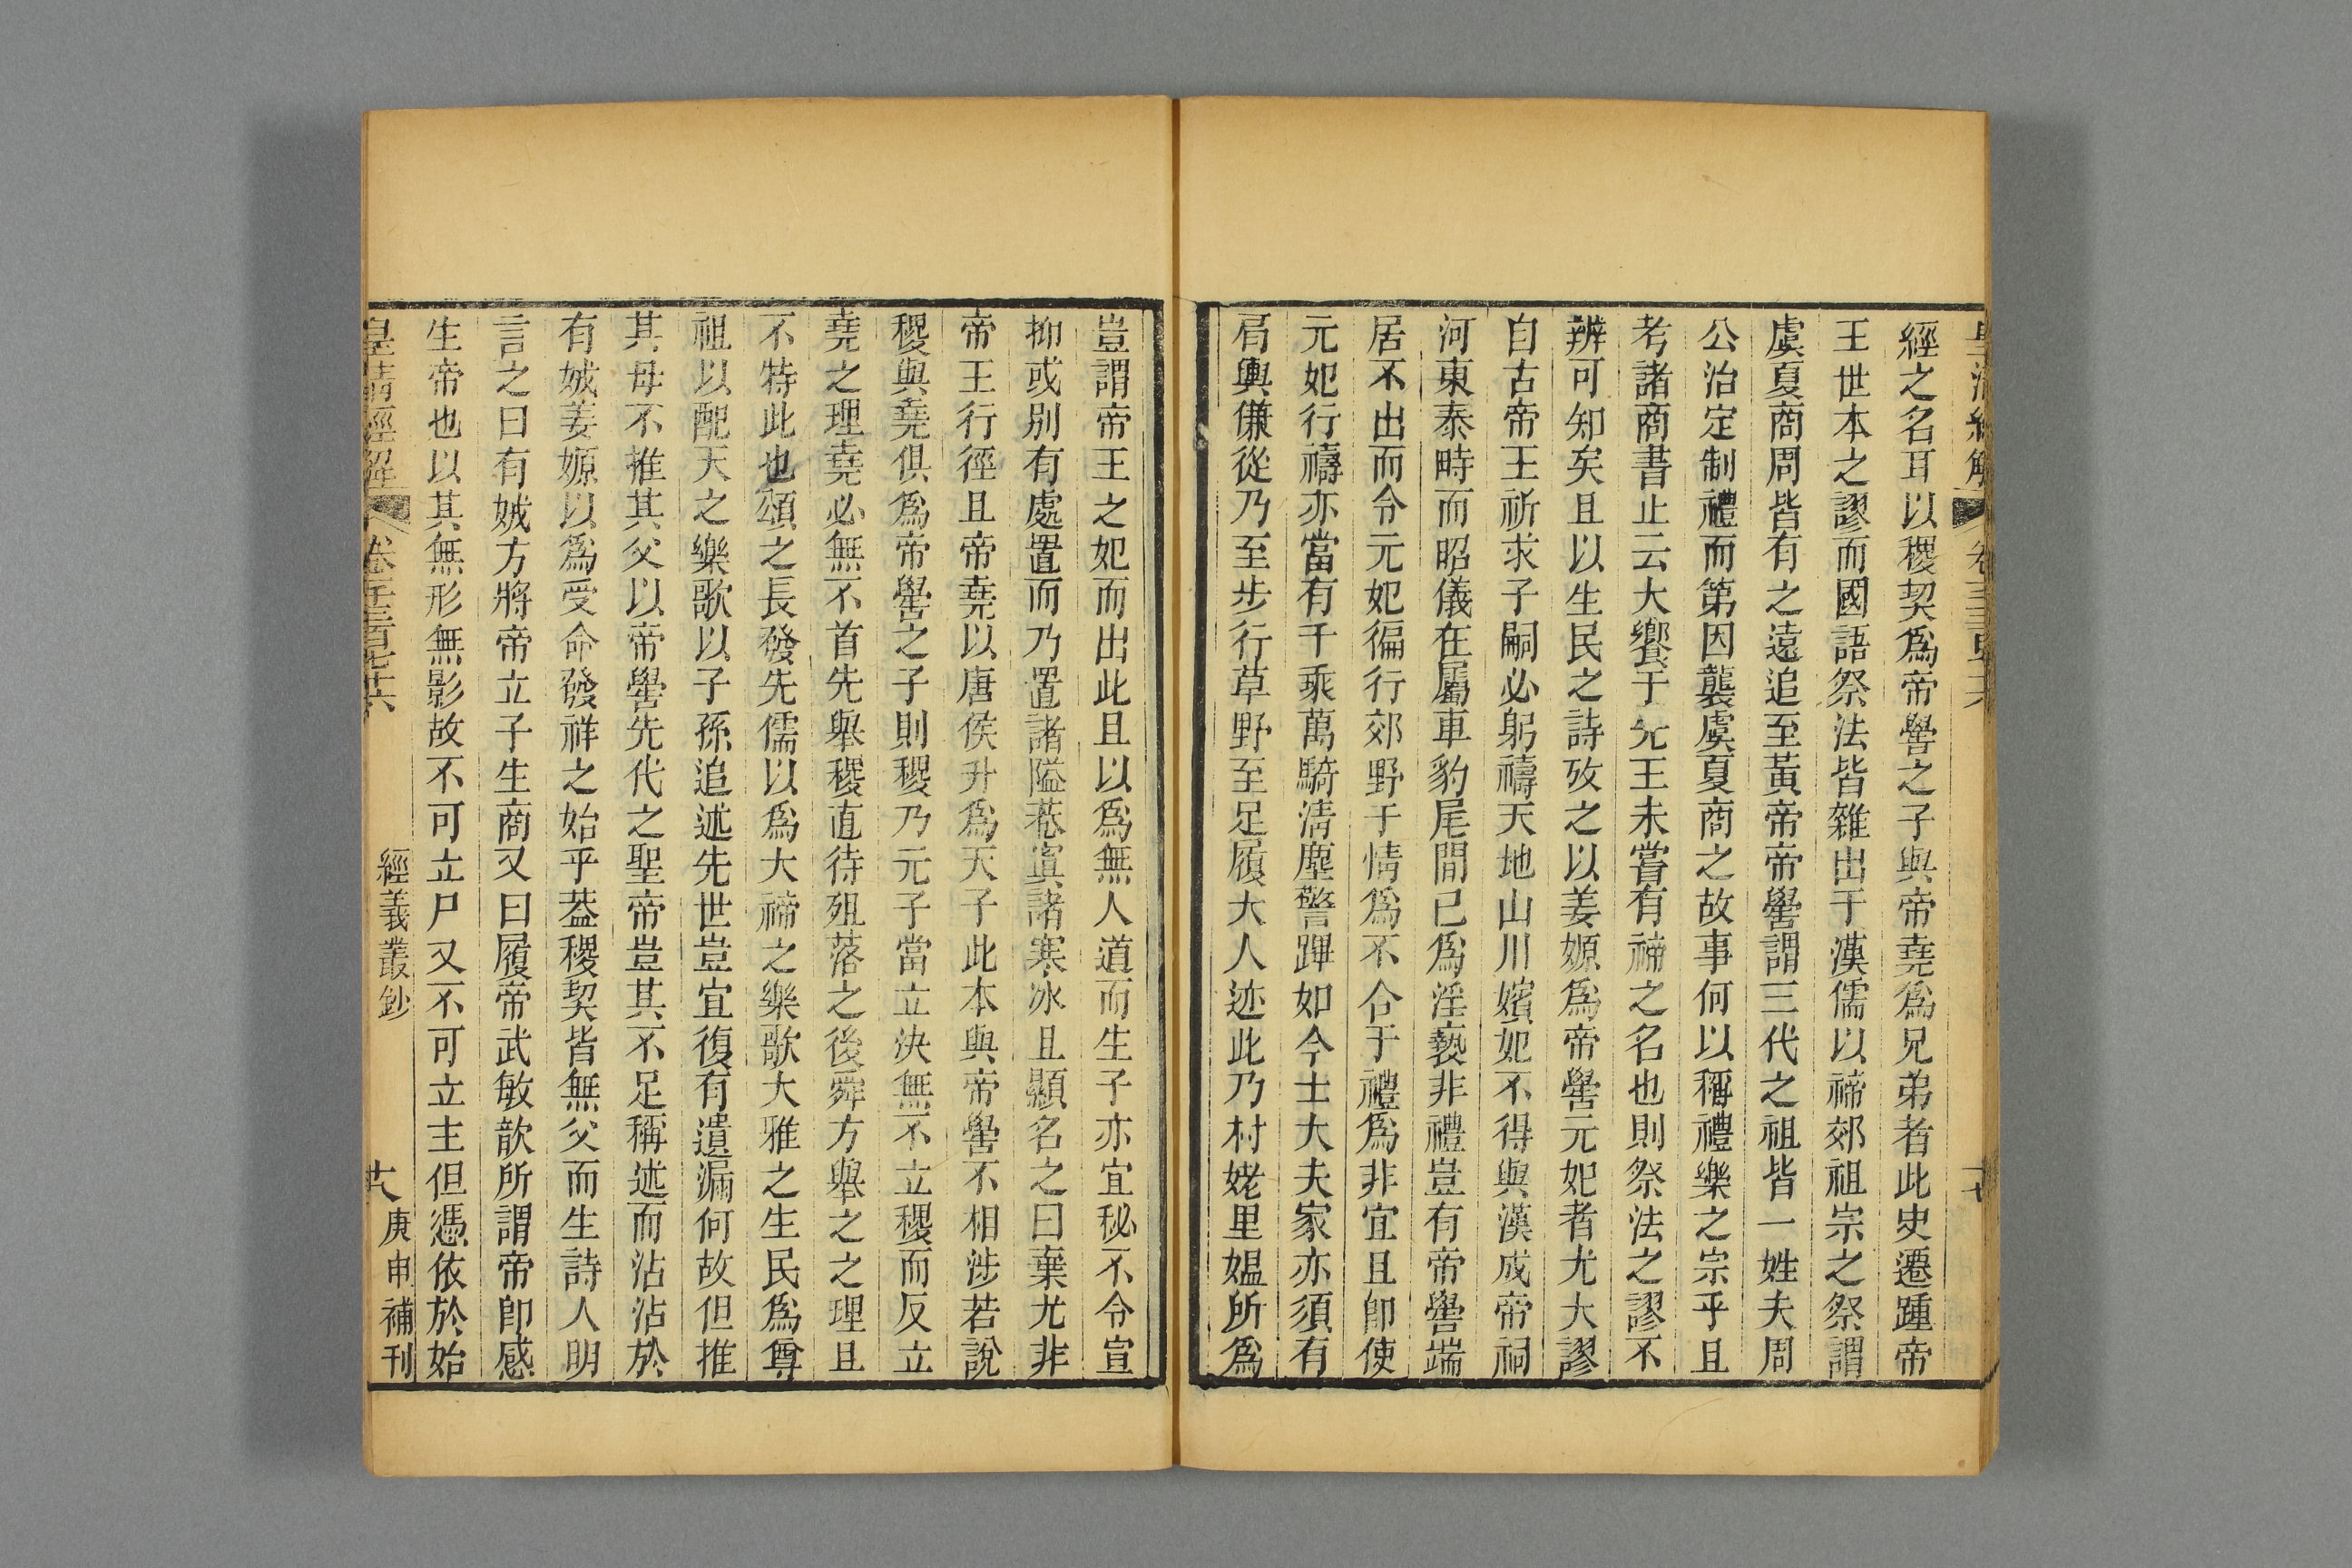 經之名耳以稷契爲帝嚳之子與帝堯爲兄弟者此史遷踵帝
王世本之謬而國語祭法皆雜出于漢儒以禘郊祖宗之祭謂
虞夏商周皆有之遠追至黃帝帝嚳謂三代之祖皆一姓夫周
公治定制禮而第因襲虞夏商之故事何以稱禮樂之宗乎且
考諸商書止云大饗于先王未嘗有禘之名也則祭法之謬不
辨可知矣且以生民之詩攷之以姜嫄爲帝嚳元妃者尤大謬
自古帝王祈求子嗣必躬禱天地山川嬪妃不得與漢成帝祠
河東泰畤而昭儀在屬車豹尾間已爲淫褻非禮豈有帝嚳端
居不出而令元妃徧行郊野于情爲不合于禮爲非宜且卽使
元妃行禱亦當有千乘萬騎淸塵警蹕如今士大夫家亦須有
肩輿傔從乃至步行草野至足履大人迹此乃村姥里媼所爲
豈謂帝王之妃而出此且以爲無人道而生子亦宜秘不令宣
抑或別有處置而乃置諸隘巷寘諸寒冰且顯名之曰棄尤非
帝王行徑且帝堯以唐侯升爲天子此本與帝嚳不相涉若說
稷與堯俱爲帝嚳之子則稷乃元子當立決無不立稷而反立
堯之理堯必無不首先舉稷直待殂落之後舜方舉之之理且
不特此也頌之長發先儒以爲大禘之樂歌大雅之生民爲尊
祖以配天之樂歌以子孫追述先世豈宜復有遺漏何故但推
其母不推其父以帝嚳先代之聖帝豈其不足稱述而沾沾於
有娀姜嫄以爲受命發祥之始乎葢稷契皆無父而生詩人明
言之曰有娀方將帝立子生商又曰履帝武敏歆所謂帝卽感
生帝也以其無形無影故不可立尸又不可立主但憑依於始
皇淸經解 卷千三百七十六 經義叢鈔 十八 庚申補刊